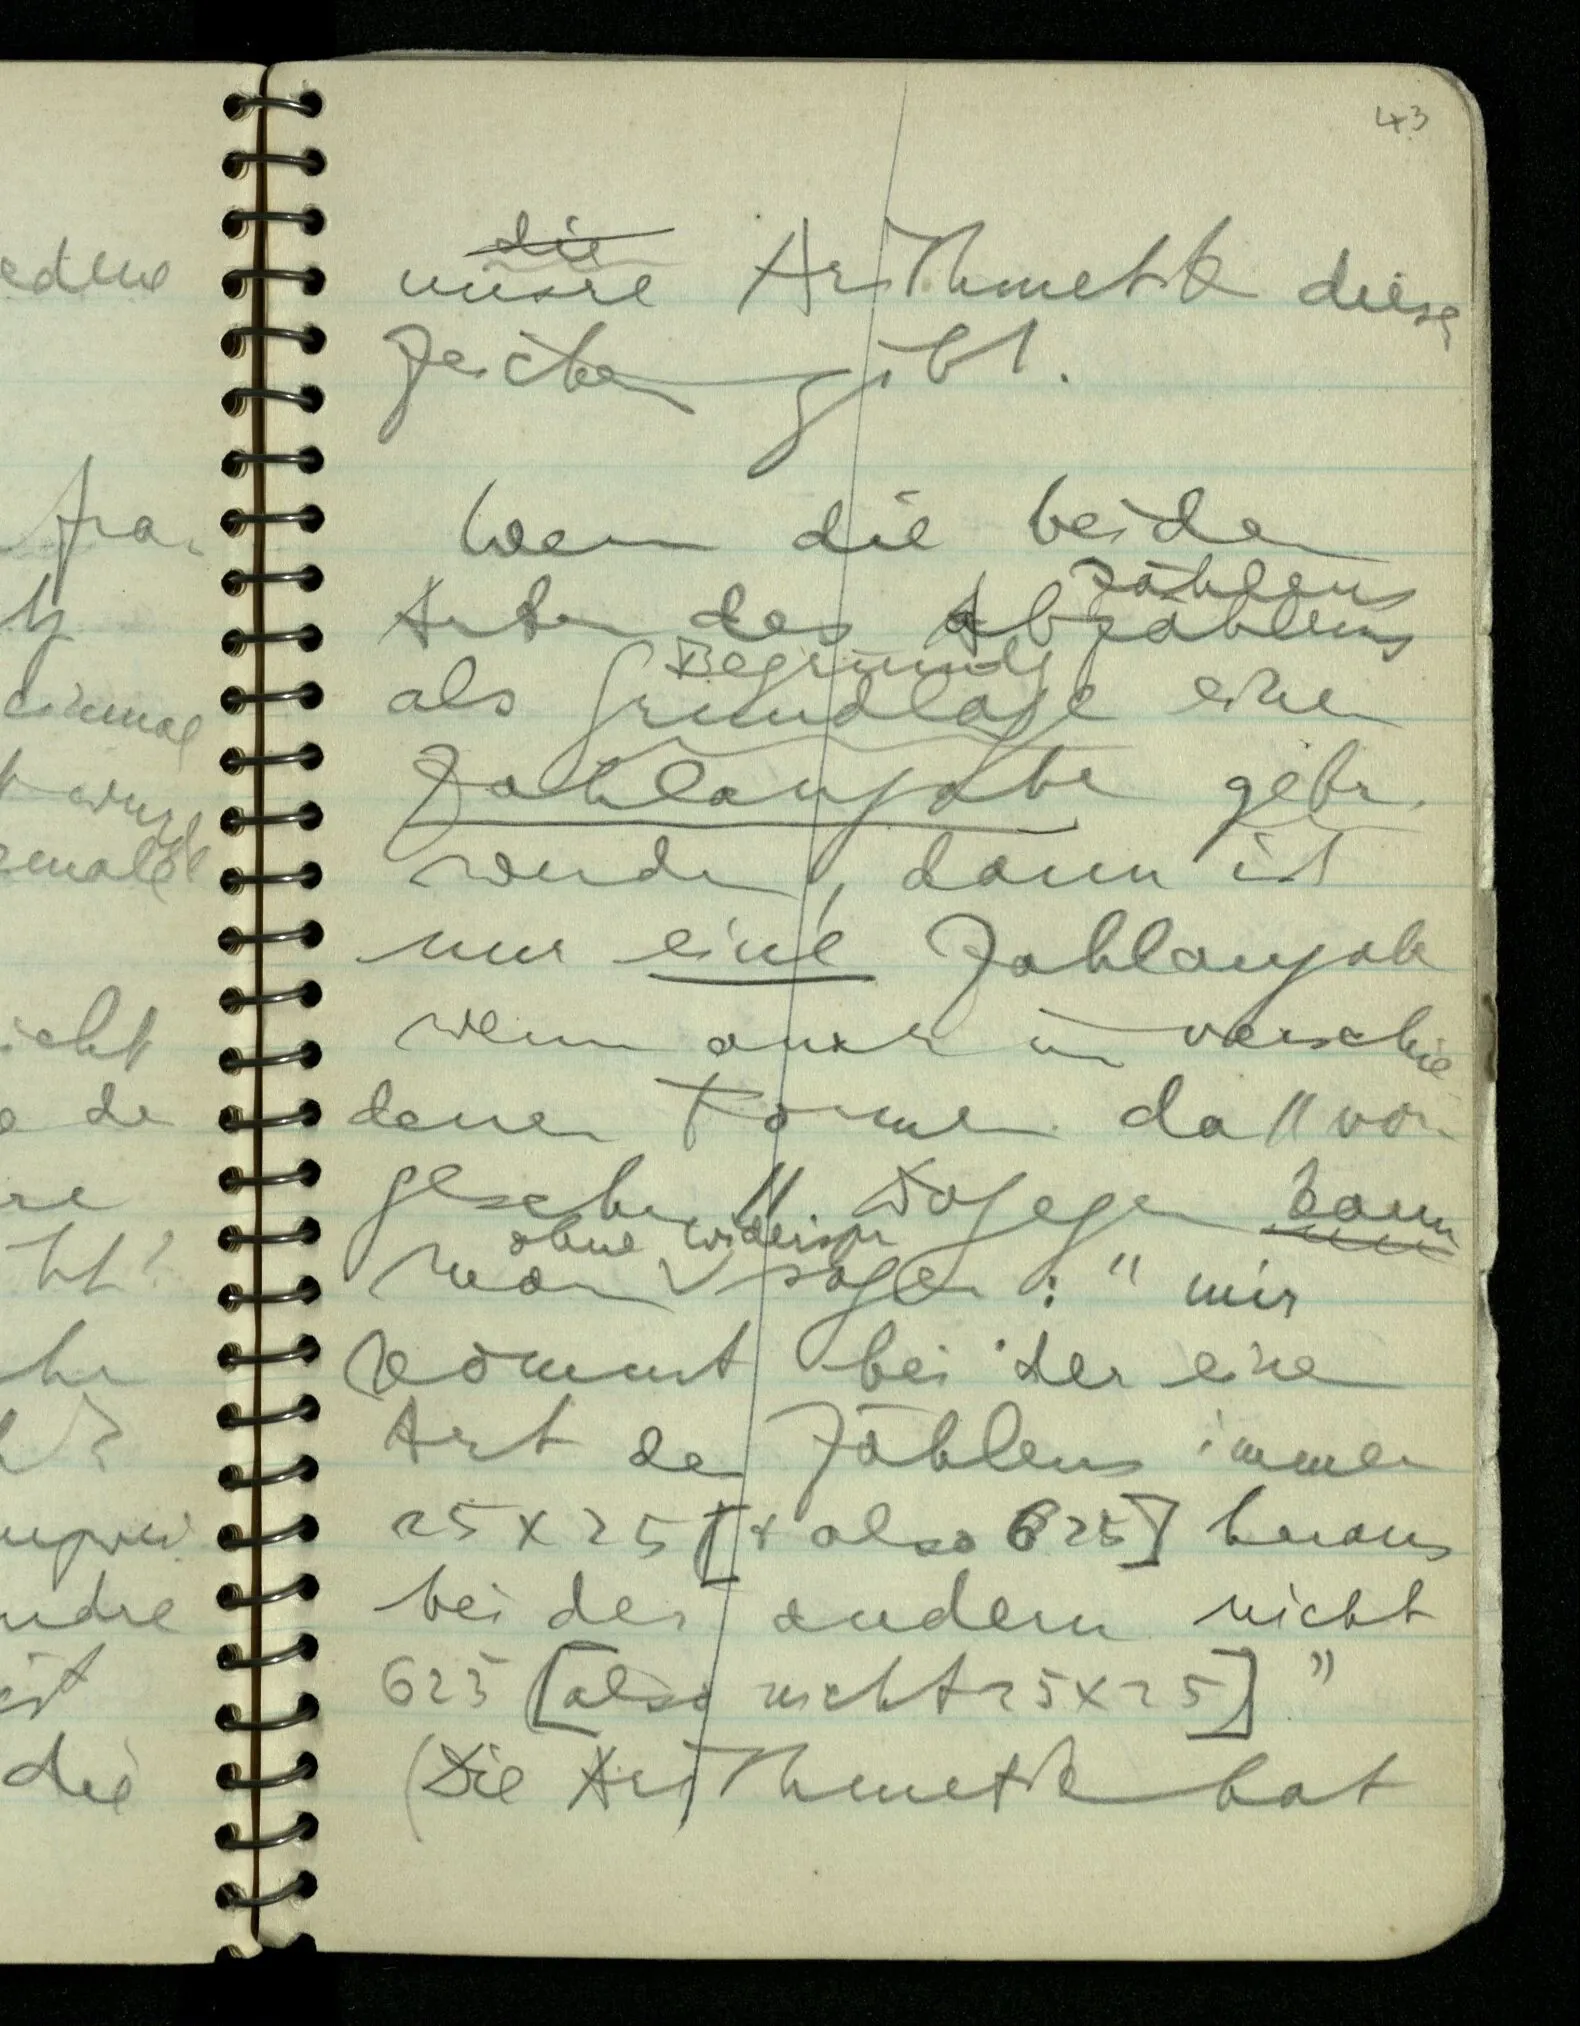 43
die
unsre Arithmetik diese
Zeichen gibt.
Wenn die beiden
zählens
Arten des Abzählens
Begründg
als Grundlage einer
Zahlangabe gebr.
werden, dann ist
nur eine Zahlangabe
wenn auch in verschie
denen Formen da "vor
gesehen". Dagegen kann
ohne Widerspr
man sagen: "mir
kommt bei der einen
Art des Zählens immer
25 x 25 [ also 625] heraus
bei der andern nicht
625 [also nicht 25 x 25]."
(Die Arithmetik hat
edene
fra
einmal
icht
de
re
ndre
ist
die